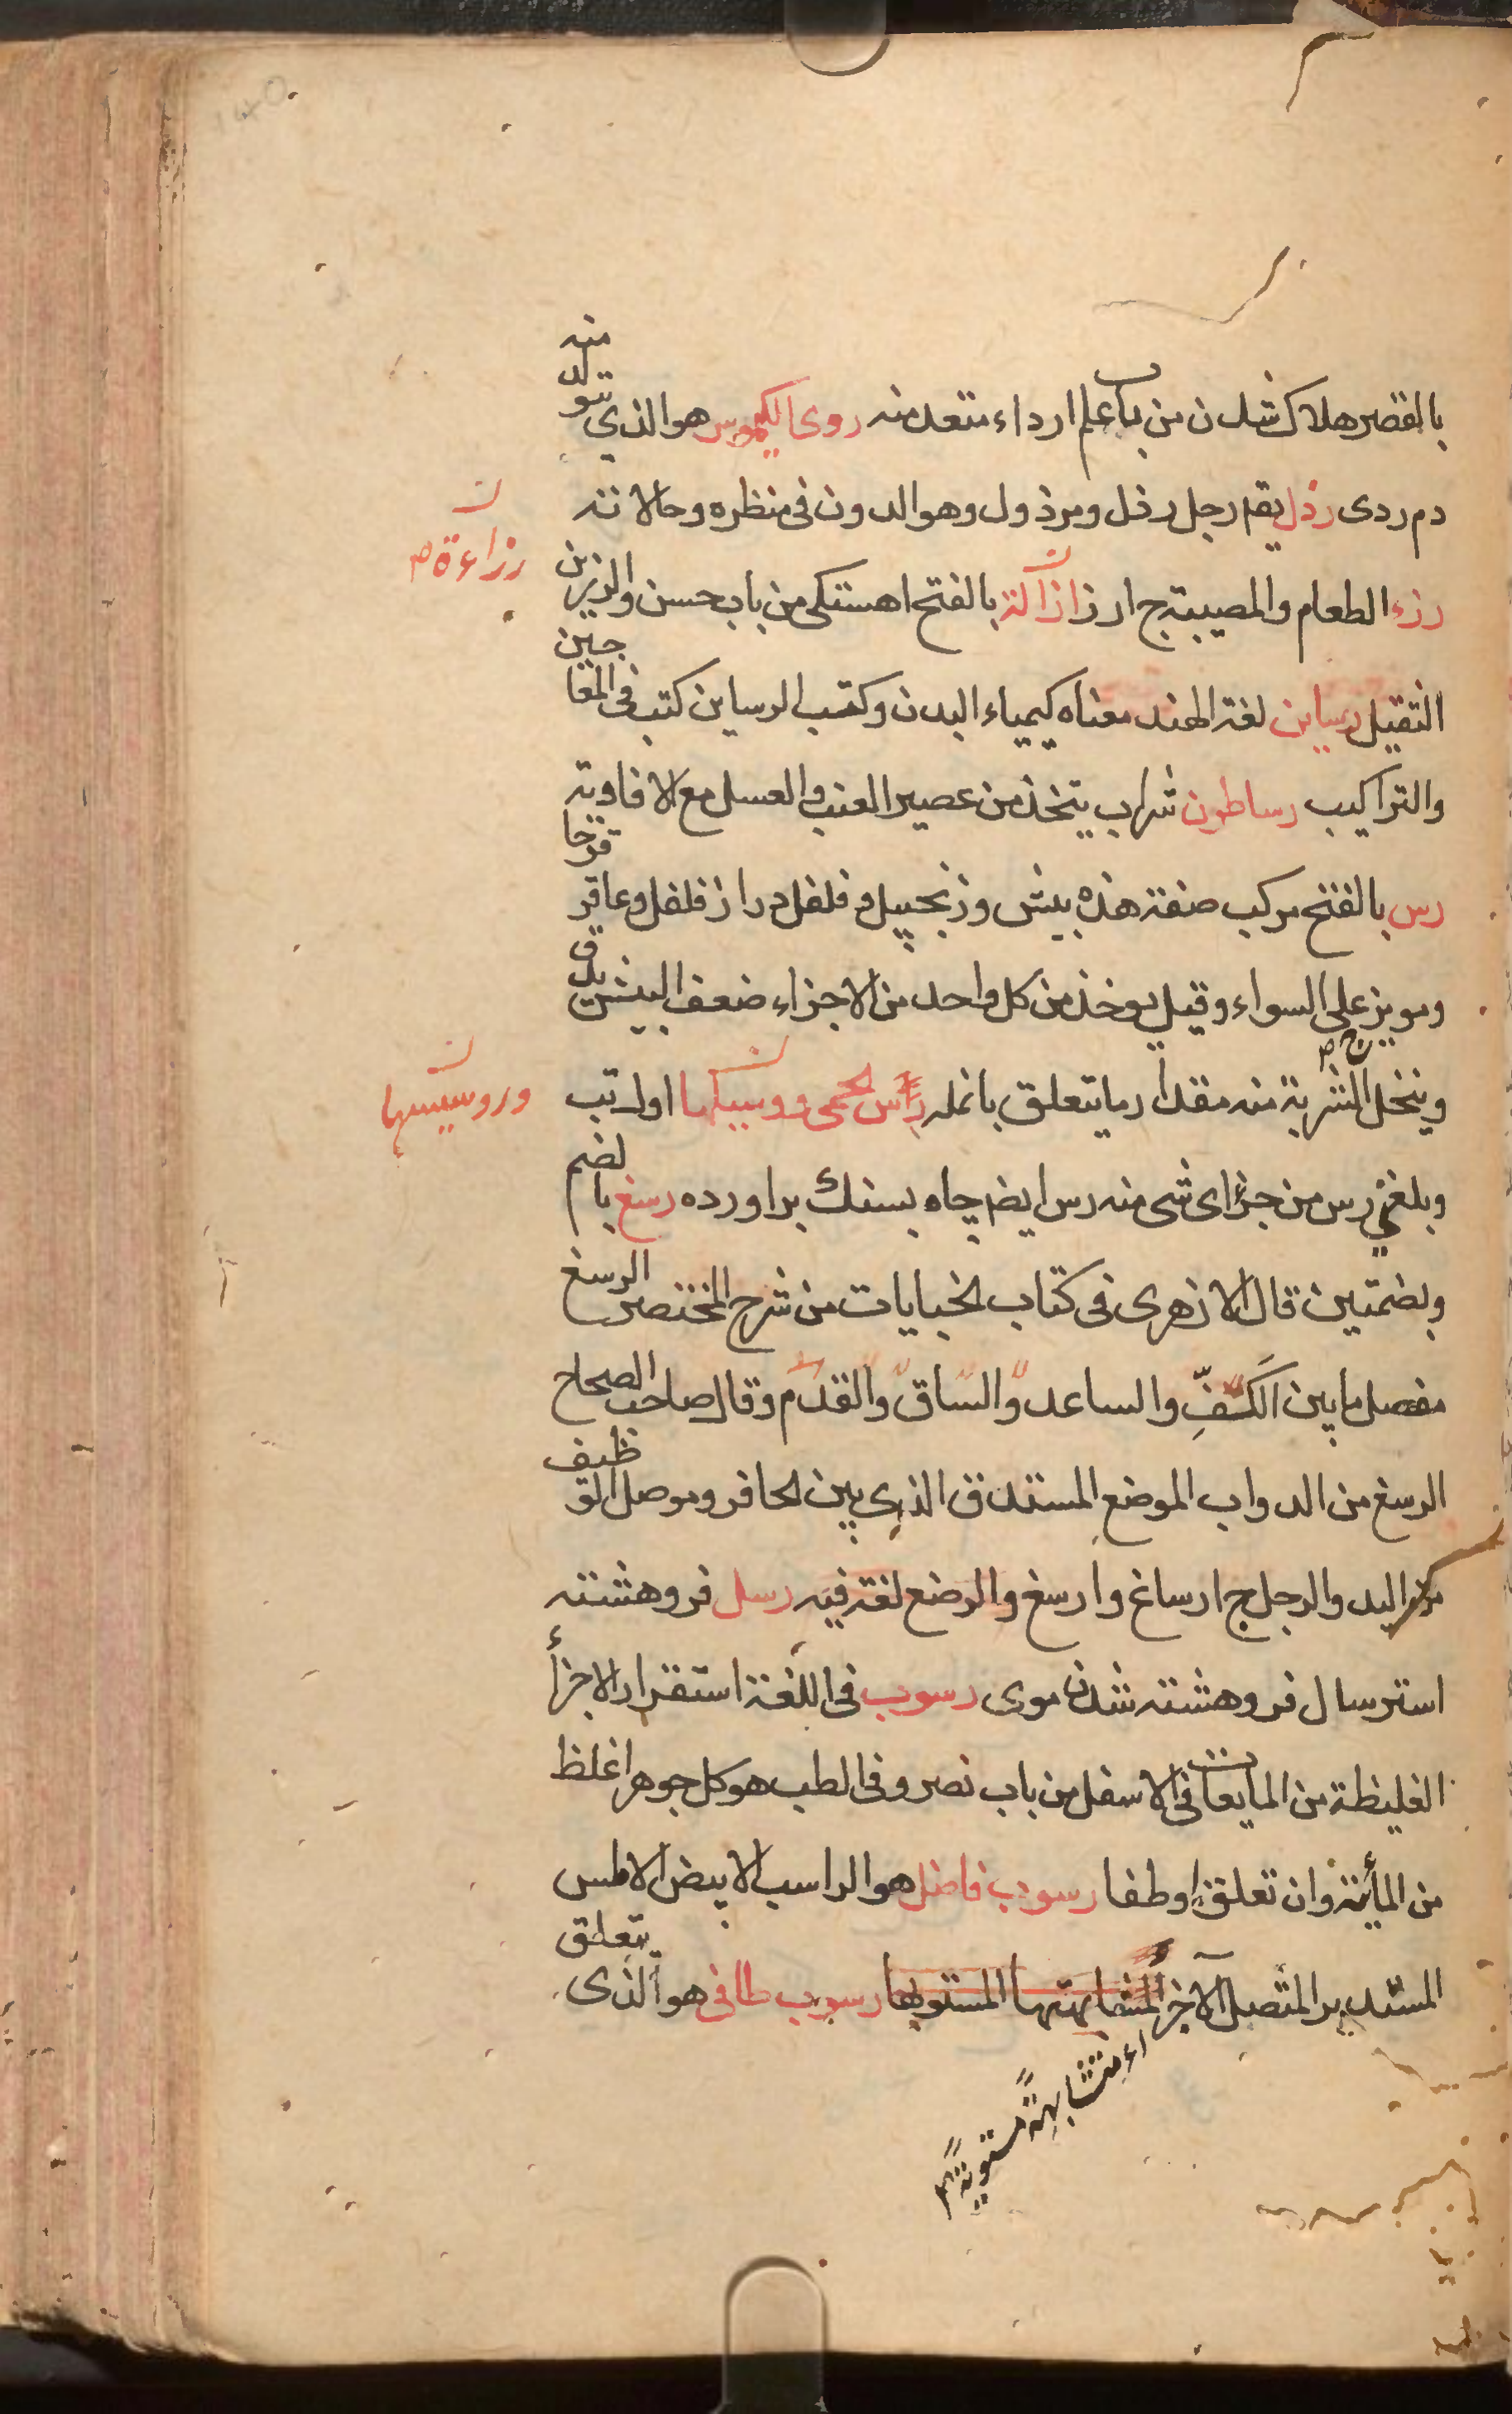 بالقصر هلاك شدن من باب علم ارداء متعد منه روى الكيموس هو الذي يتولد منه
دم ردى رذل يقم رجل رذل ومرذول وهو الدون فى منظره وحالاته
رزء الطعام والمصيبة ج ارزا بالفتح اهستكى من باب حسن والرزين
رزاءة ص
الثقيل رساين لغة الهند معناه كيمياء البدن وكتب الرساين كتب فى المعاجين
والتراكيب رساطون شراب يتخذ من عصير العنب والعسل مع الافاويه
رس بالفتح مركب صفته هذه بيش وزنجبيل وفلفل دراز فلفل وعاقر قرحا
ومويزج على السواء وقيل يوخذ من كل واحد من الاجزاء ضعف البيش يدق
وينخل الشربة منه مقدار ما يتعلق بانمله رس الحمى ورسيسها اول تب
ورسيسها
وبلغني رس من جزء اى شى منه رس ايض چاه بسنك براورده رسغ بالضم
وبضمتين قال الازهرى فى كتاب الجنايات من شرح المختصر الرسغ
مفصل ما بين الكف والساعد والساق والقدم وقال صاحب الصحاح
الرسغ من الدواب الموضع المستدق الذى بين الحافر وموصل الوظيف
من اليد والرجل ج ارساغ وارسغ والرضع لغة فيه رسل فروهشته
استرسال فروهشته شدن موى رسوب فى اللغة استقرار الاجزأ
الغليظة من المايعات فى الاسفل من باب نصر وفى الطب هو كل جوهر اغلظ
من المأئية وان تعلق اوطفا رسوب فاضل هو الراسب الابيض الاملس
المستدير المتصل الاجز المتشابهتها المستويها رسوب طافى هو الذى يتعلق
اء متشابهة مستوية م